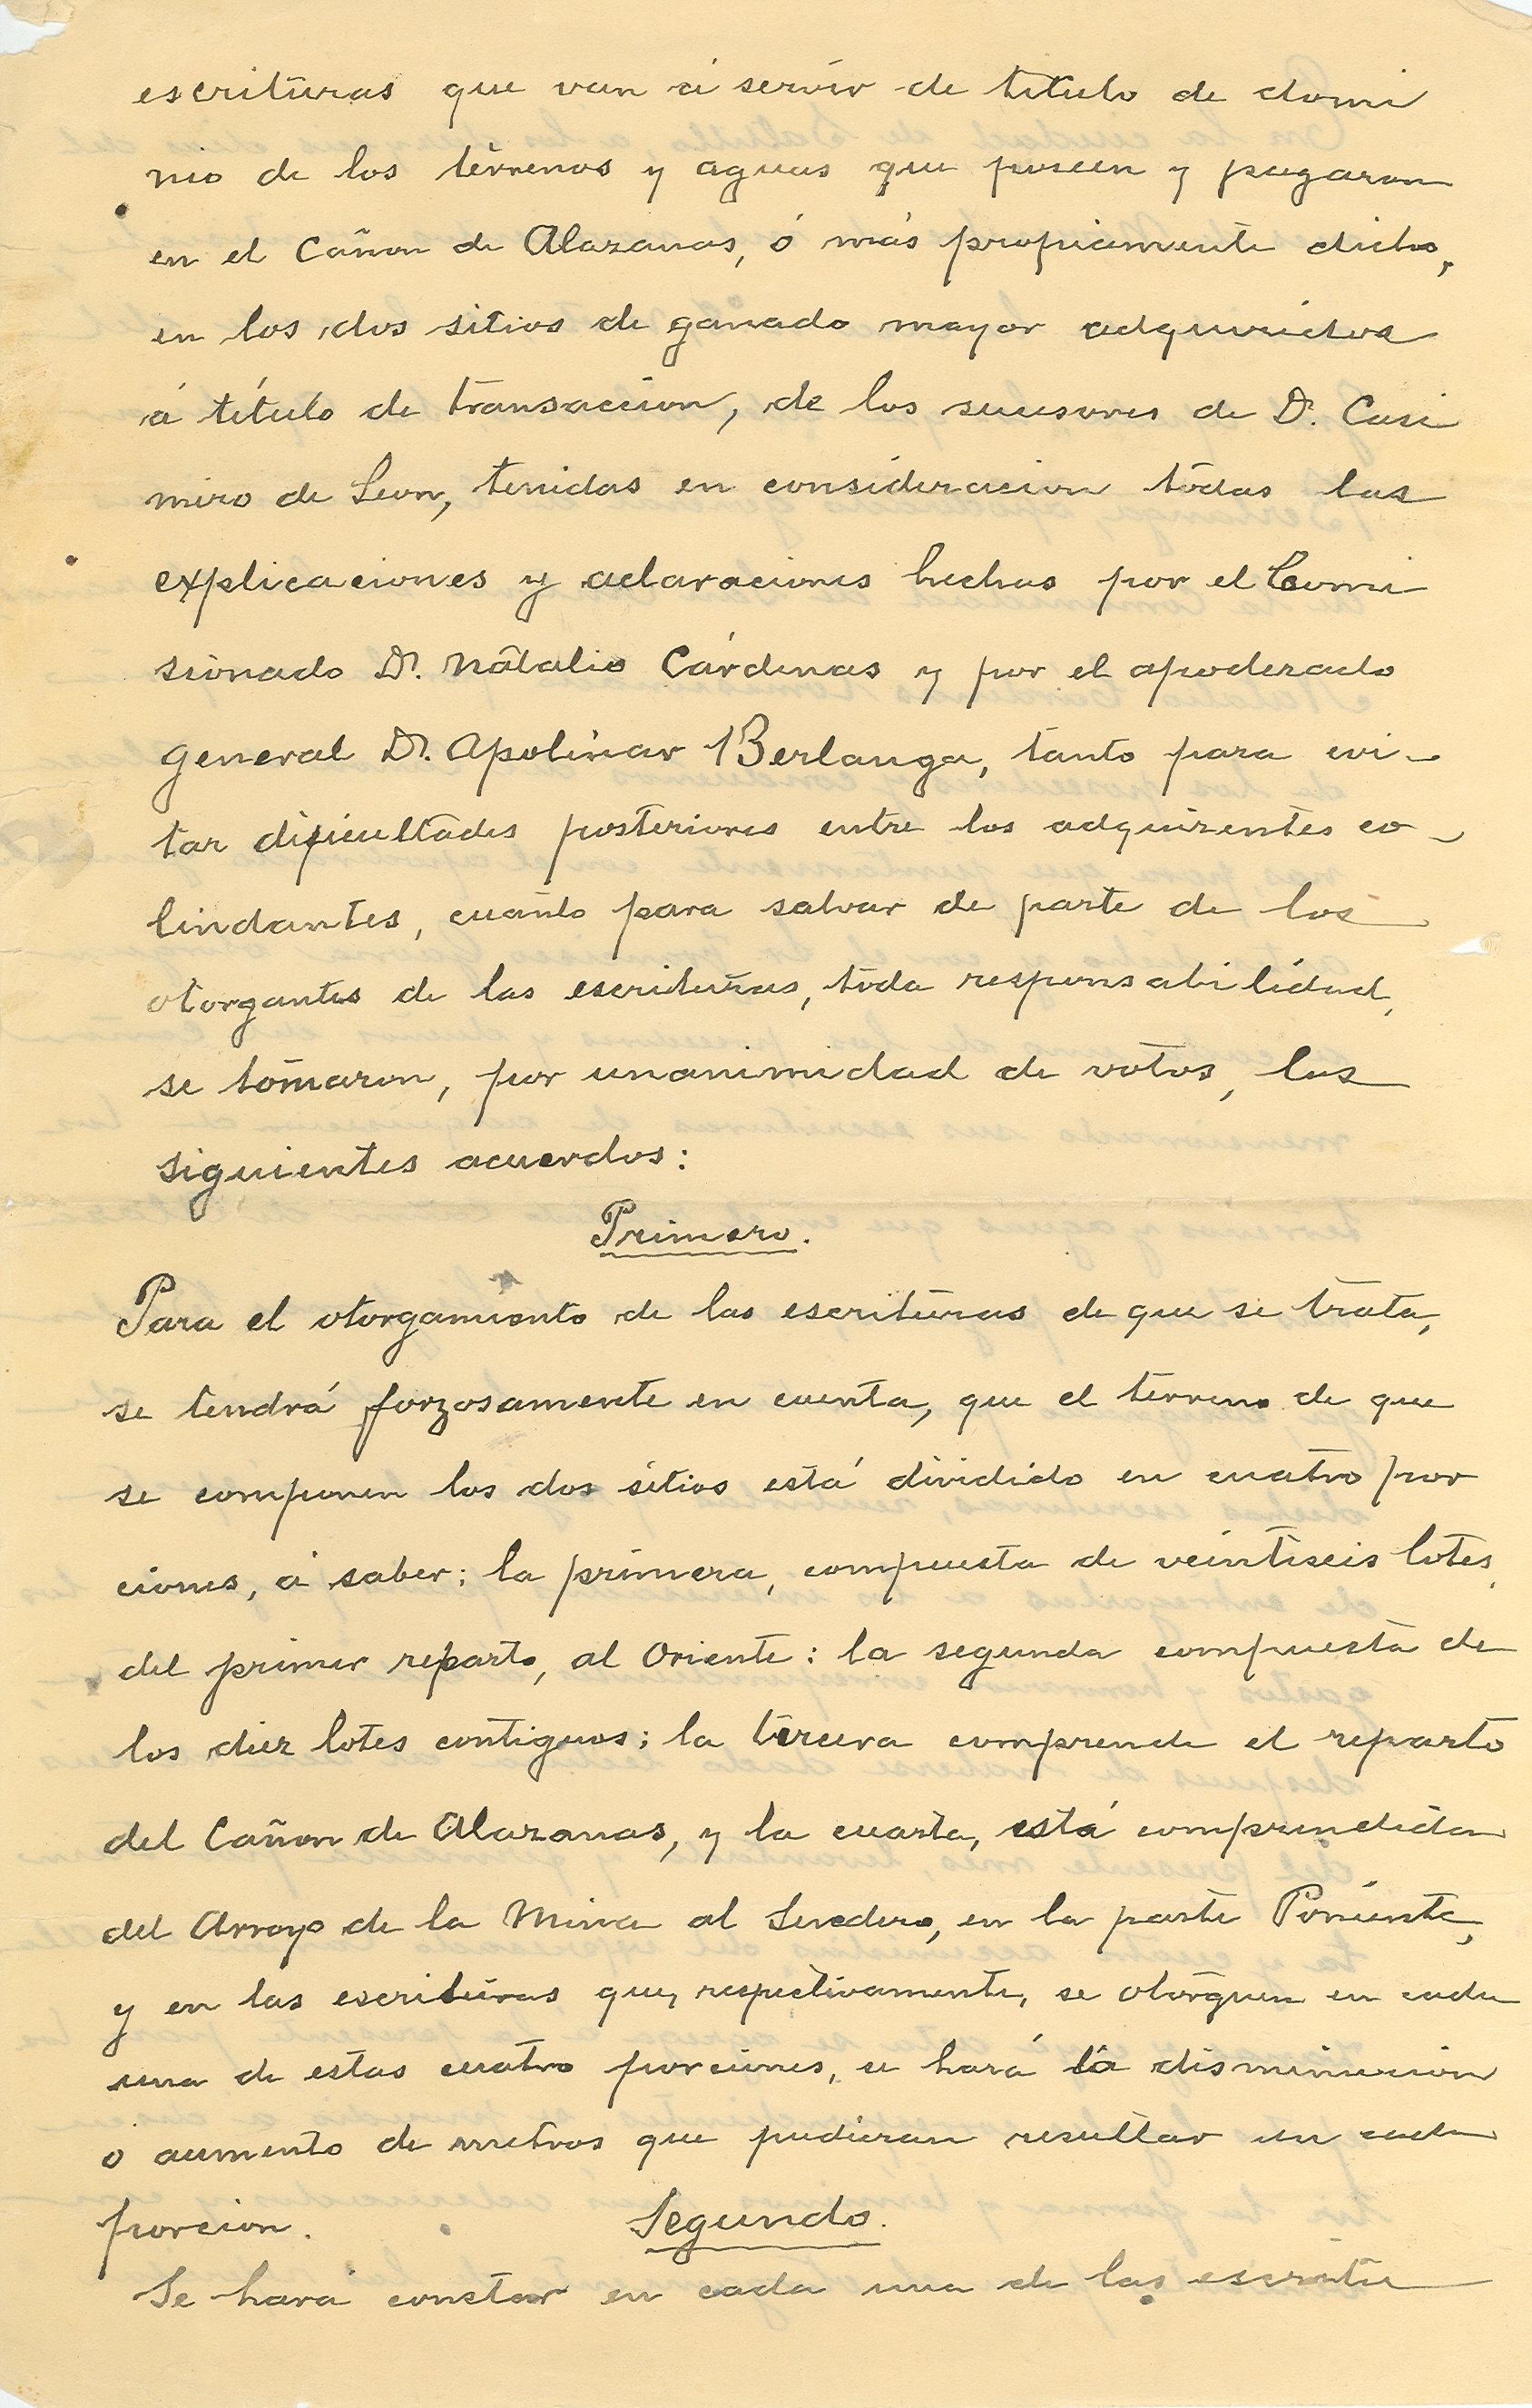 escrituras que van á servir de titulo de domi
nio de los terrenos y aguas que poseen y pagaron
en el Cañon de Alazanas, ó más propiamente dicho,
en los dos sitios de ganado mayor adquiridos
á título de transaccion, de los sucesores de D. Casi
miro de Leon, tenidas en consideracion todas las
explicaciones y aclaraciones hechas por el Comi
sionado D. Natalio Cárdenas y por el apoderado
general D. Apolinar Berlanga, tanto para evi-
tar dificultades posteriores entre los adquirentes co-
lindantes, cuanto para salvar de parte de los
otorgantes de las escrituras, toda responsabilidad,
se tomaron, por unanimidad de votos, los
siguientes acuerdos:
Primero.
Para el otorgamiento de las escrituras de que se trata,
se tendrá forzosamente en cuenta, que el terreno de que
se componen los dos sitios está dividido en cuatro por
ciones, á saber; la primera, compuesta de veintiseis lotes,
del primer reparto, al Oriente: la segunda compuesta de
los diez lotes contiguos; la tercera comprende el reparto
del Cañon de Alazanas, y la cuarta, está comprendida
del Arroyo de la Mina al Senedero, en la parte Poniente,
y en las escrituras que, respectivamente, se otorguen en cada
una de estas cuatro porciones, se hará la disminucion
ó aumento de metros que pudieran resultar en cada
porcion.
Segundo.
Se hará constar en cada una de las escritu